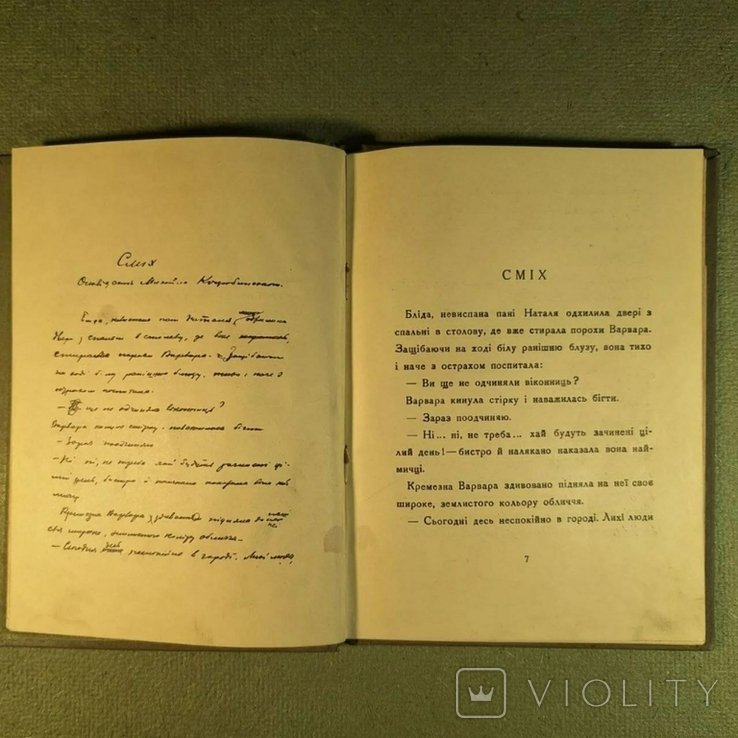 Сміх
Бліда, невиспана пані Наталя
спальні в столову, де вже
стирала порохи Варвара. Защібаючи
на ході білу ранішню блузу, тихо і наче з
острахом поспитала:
— ще не одчиняли віконниць?
Варвара кинула стірку
— Зараз поодчиняю.
— Ні ні, не треба хай будуть зачинені ці-
лий день, бистро й налякано наказала вона най-
мичці.
Кремезна Варвара здивовано підняла на неї
своє широке, землистого кольору обличчя.
— Сьогодні десь неспокійно в городі. Лихі люди
СМІХ
Бліда, невиспана пані Наталя одхилила двері з
спальні в столову, де вже стирала порохи Варвара.
Защібаючи на ході білу ранішню блузу, вона тихо
і наче з острахом поспитала:
— Ви ще не одчиняли віконниць?
Варвара кинула стірку і наважилась бігти.
— Зараз поодчиняю.
— Ні... ні, не треба... хай будуть зачинені ці-
лий день!—бистро й налякано наказала вона най-
мичці.
Кремезна Варвара здивовано підняла на неї своє
широке, землистого кольору обличчя.
— Сьогодні десь неспокійно в городі. Лихі люди
7
VIOLITY